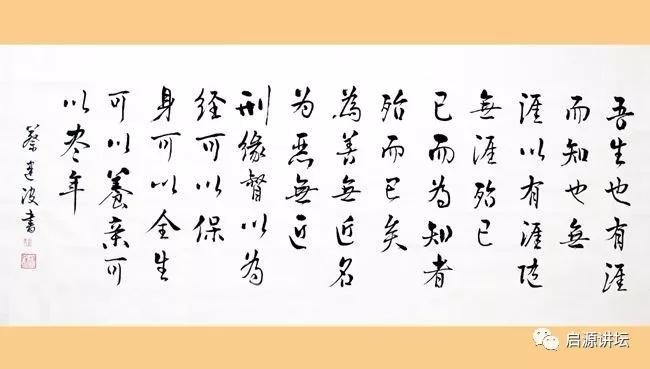 吾生也有涯
而知也無
涯以有涯随
無涯殆已
已而為知者
殆而已矣
為善無近名
为惡無近
刑緣督以為
经可以保
身可以全生
可以養亲可
以尽年
蔡波書
启源讲坛